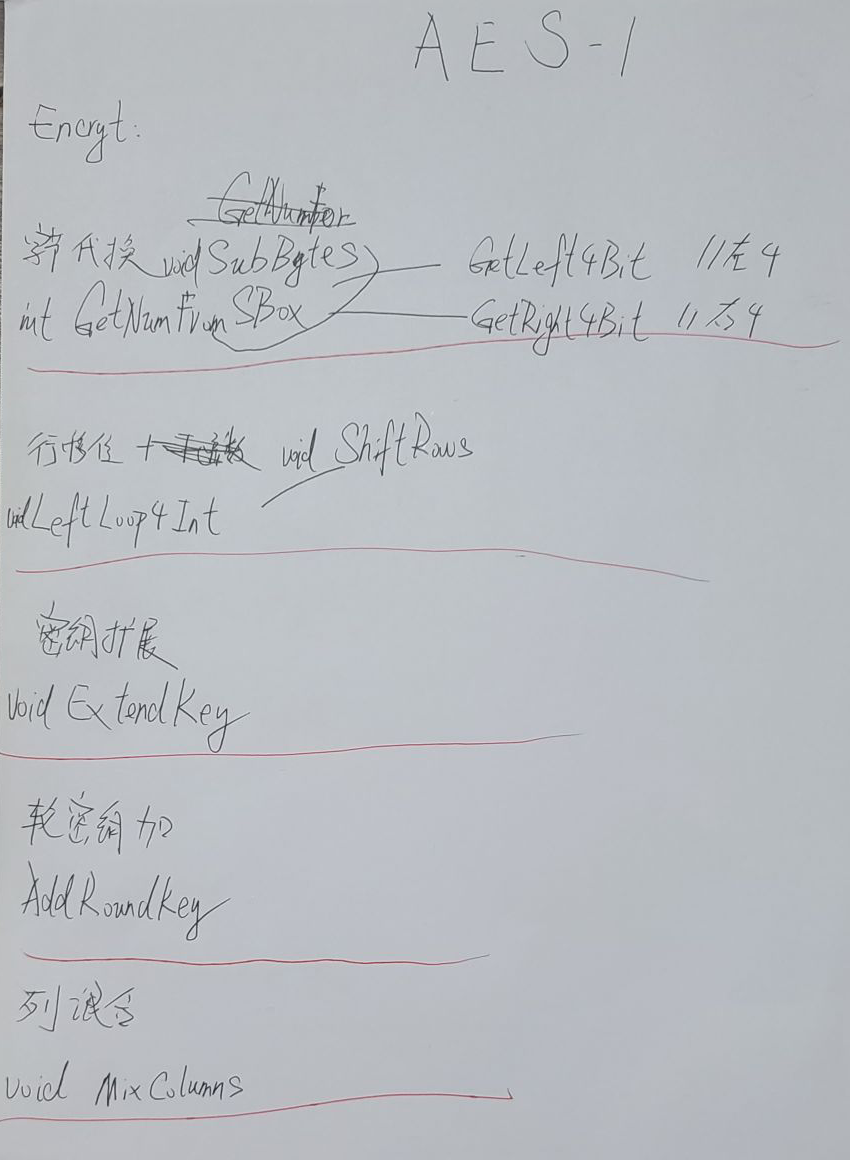 AES-1
Encryt:
字节代换 void SubBytes GetLeft4Bit //左4
int GetNumFromSBox GetRight4Bit //右4
行移位 + void ShiftRows
void LeftLoop4Int
密钥扩展
void ExtendKey
轮密钥加
AddRoundKey
列混合
void MixColumns